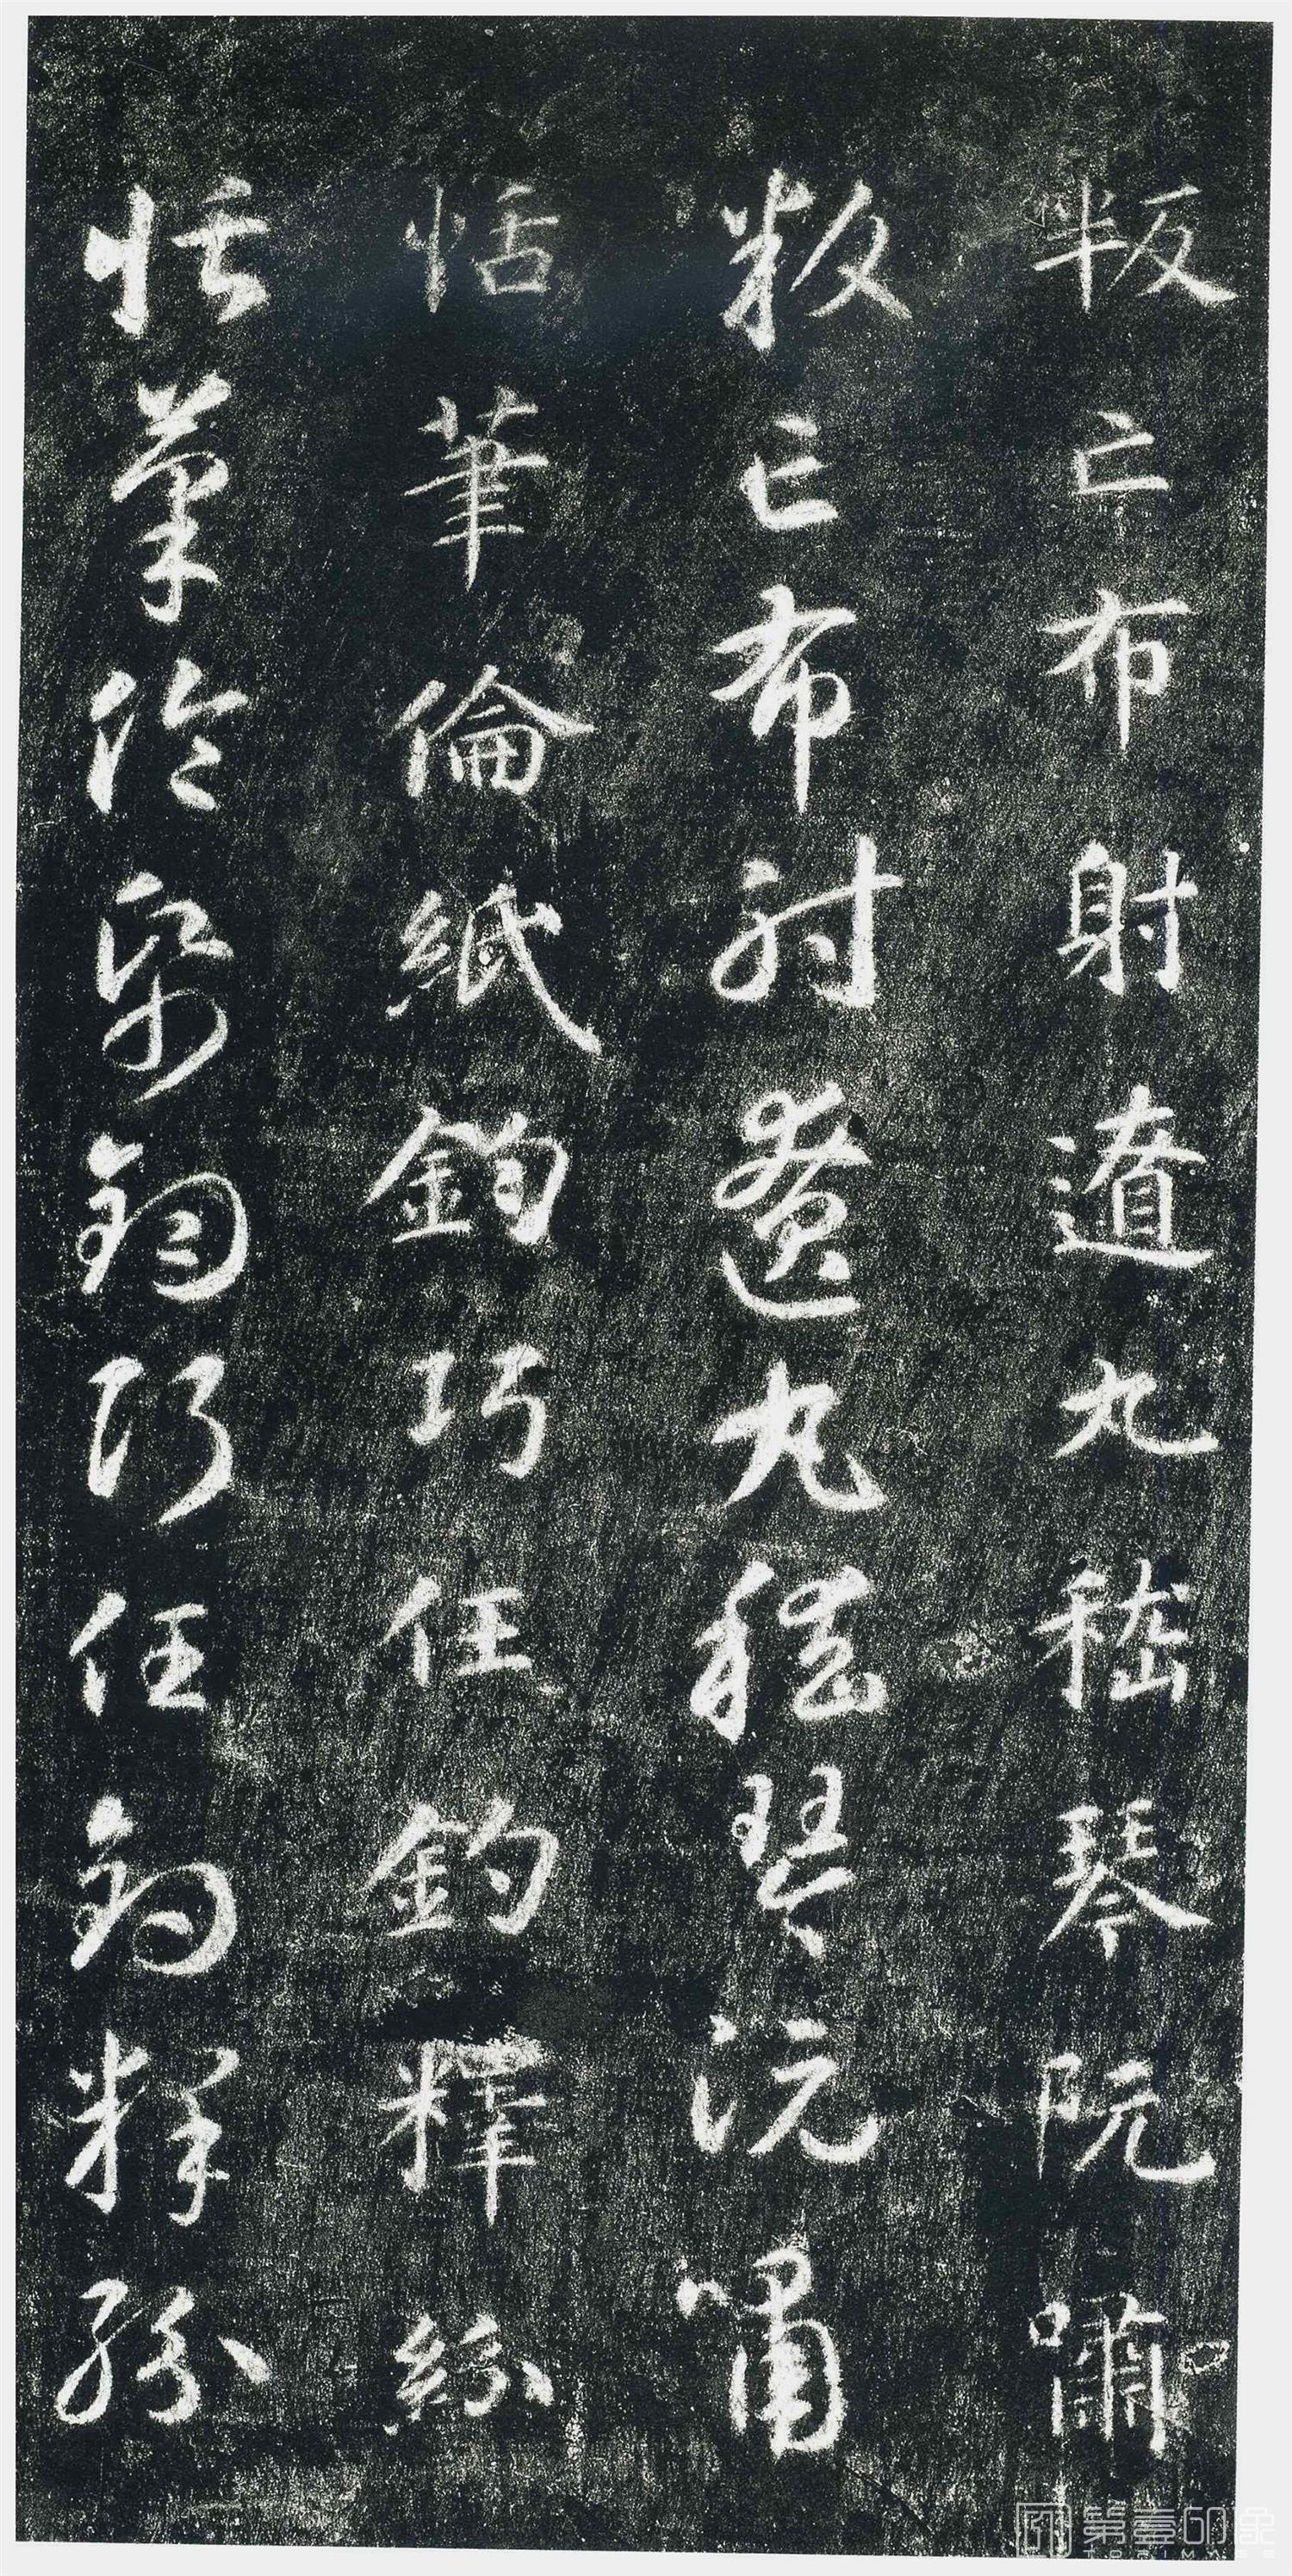 叛亡布射遼丸嵇琴阮嘯
叛亡布射遼丸嵇琴阮嘯
恬筆倫紙鈞巧任釣釋紛
恬筆倫紙鈞巧任釣釋紛
第壹印象
TOPIMAGE